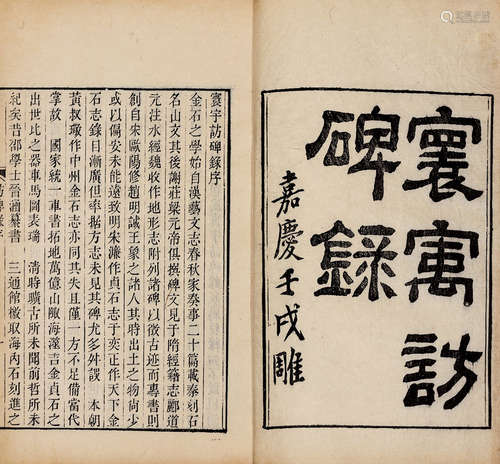 寰寓訪
碑錄
嘉慶壬戌雕
寰宇訪碑錄序
金石之學始自漢藝文志春秋家奏事二十篇載秦刻石
名山文其後謝莊梁元帝俱撰碑文見于隋經籍志酈道
元注水經魏收作地形志附列諸碑以徵古迹而專書則
創自宋歐陽修趙明誠王象之諸人其時出土之物尚少
或以偏安未能遠致明朱濂作貞石志于奕正作天下金
石志錄日漸廣但率据方志未見其碑尤多舛誤 本朝
黃叔璥作中州金石志亦同其失且僅一方不足備當代
掌故 國家統一車書拓地萬億山陬海澨吉金貞石之
出世比之器車馬圖表瑞 清時曠古所未聞前哲所未
紀矣昔邵學士晉涵纂書 三通館檄取海內石刻進之